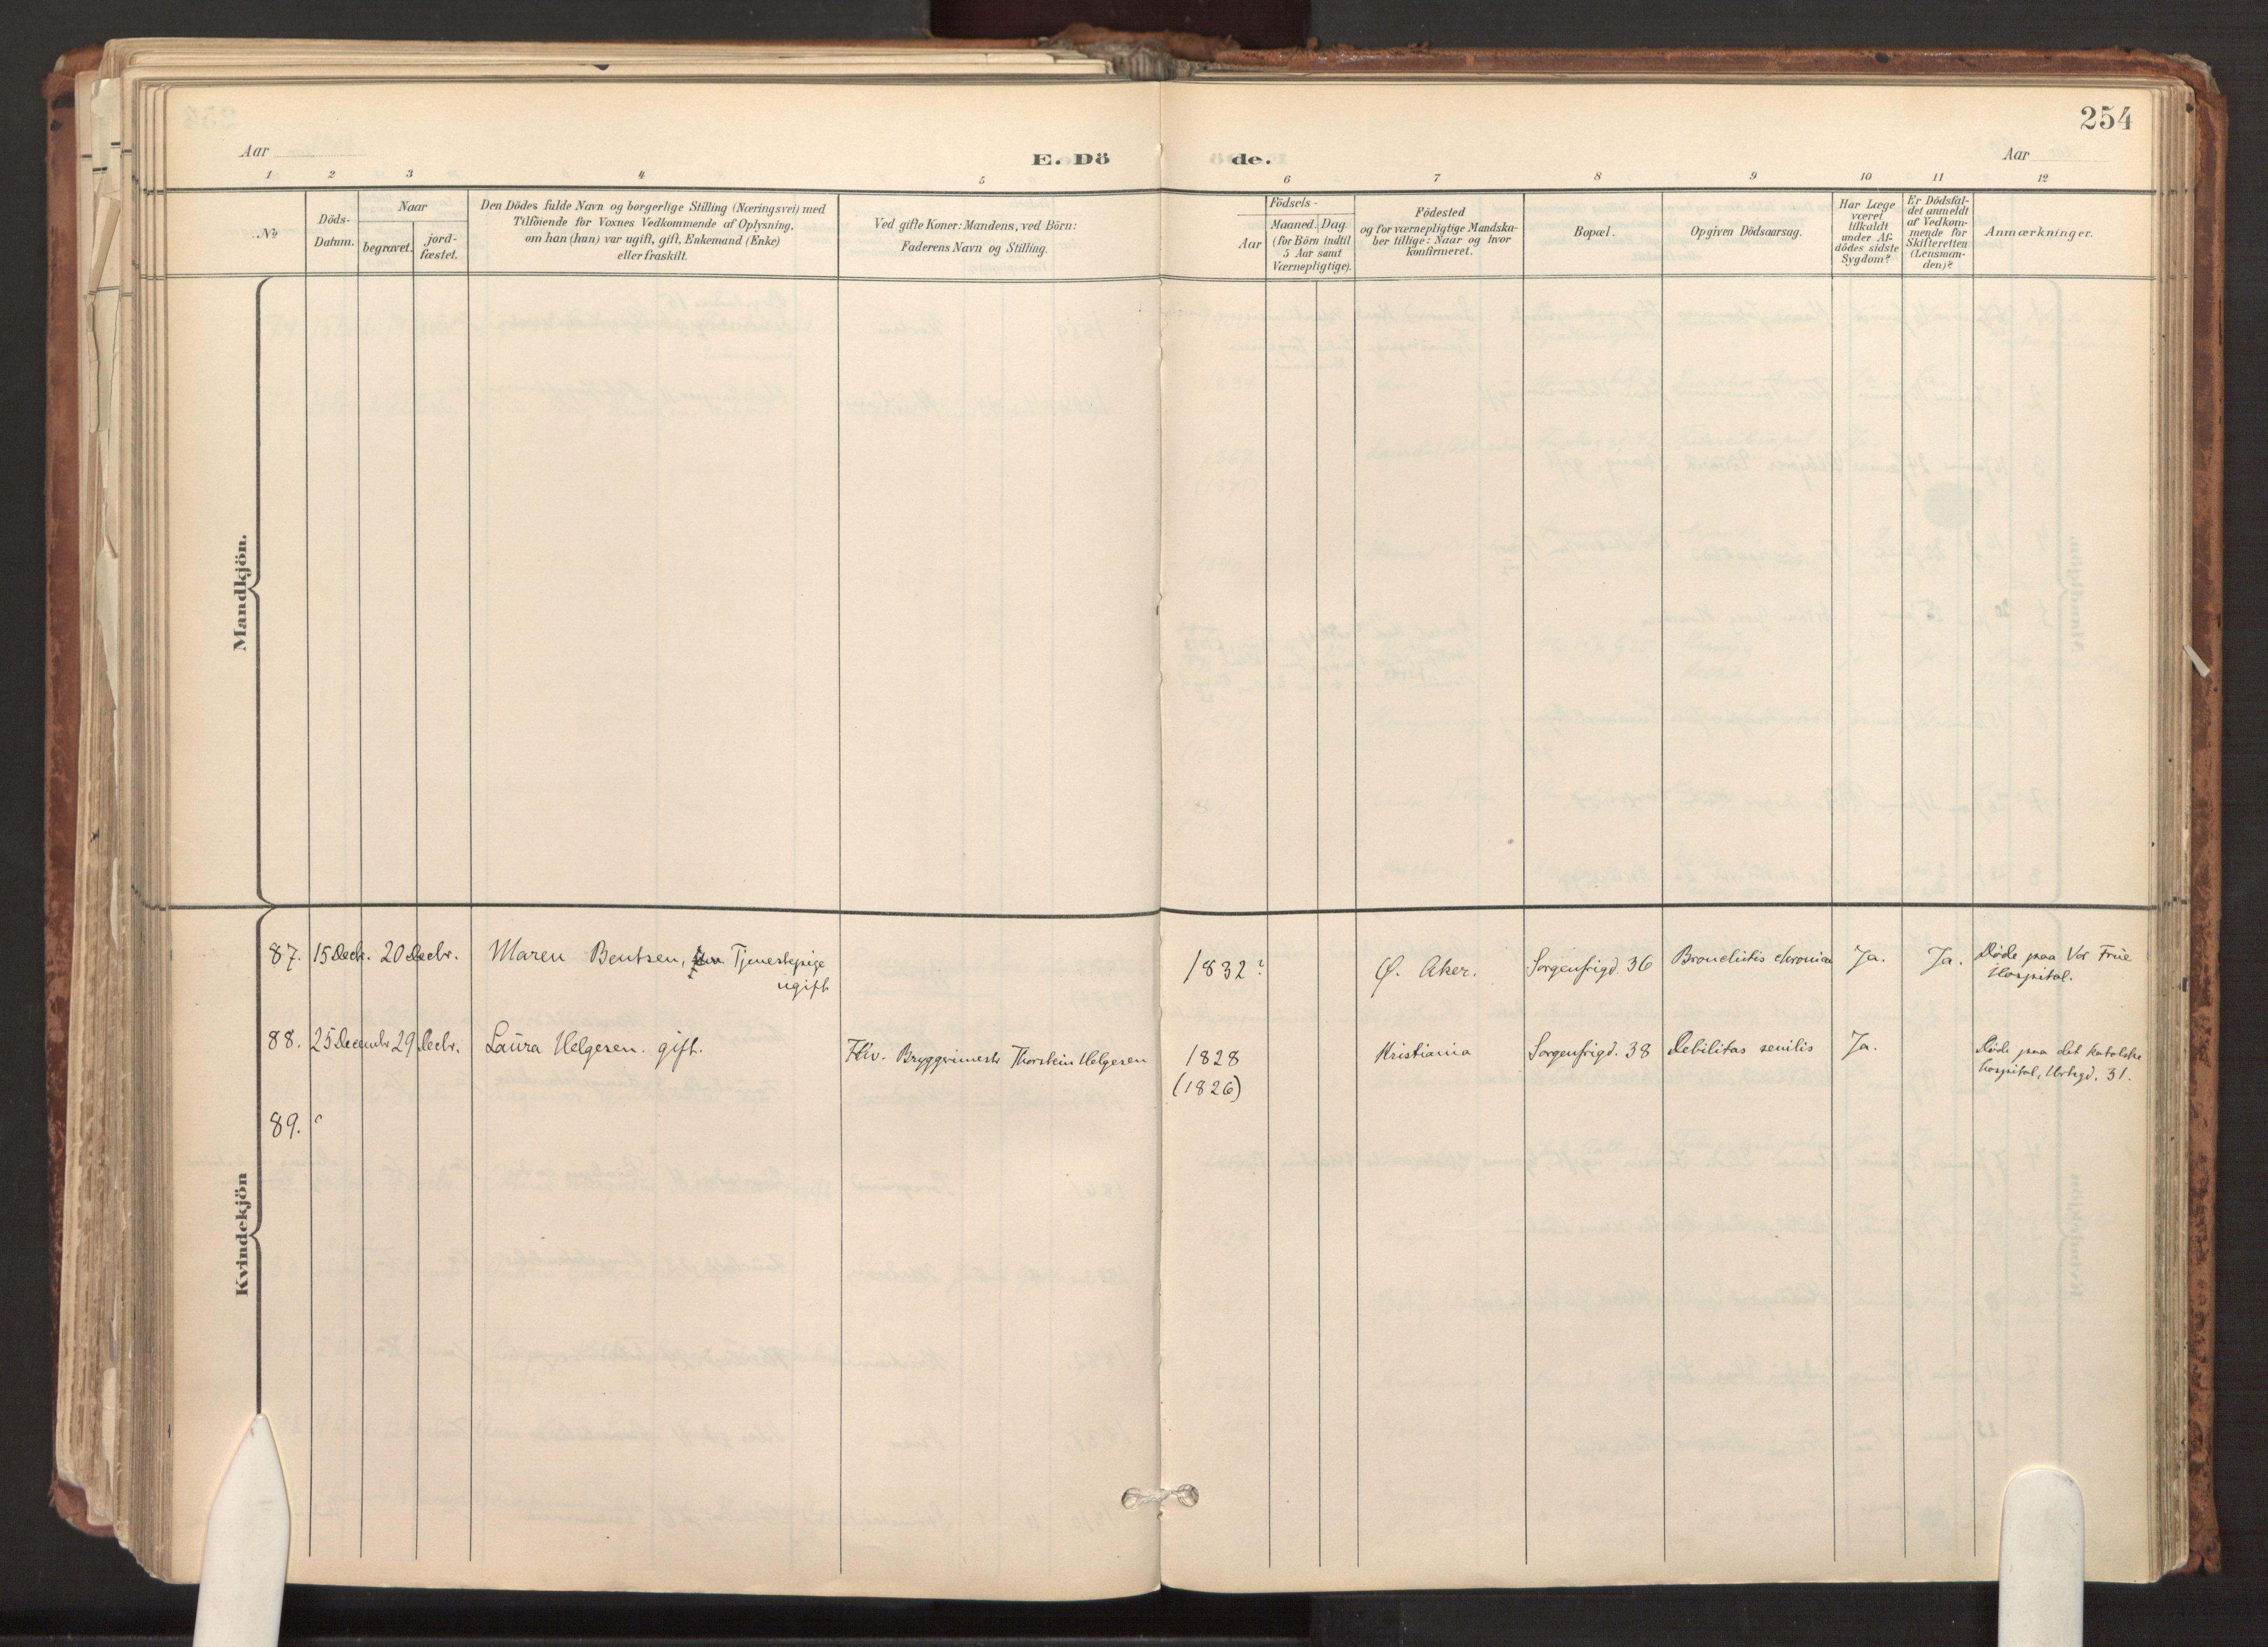 254
Aar
E. Dö
de.
Aar
1 2 3 4 5 6 7 8 9 10 11 12
No
Döds-
Datum.
Naar
begravet.
jord-
fæstet.
Den Dödes fulde Navn og borgerlige Stilling (Næringsvei) med
Tilföiende for Voxnes Vedkommende af Oplysning,
om han (hun) var ugift, gift, Enkemand (Enke)
eller fraskilt.
Ved gifte Koner: Mandens, ved Börn:
Faderens Navn og Stilling.
Födsels-
Aar
Maaned. Dag.
(for Börn indtil
5 Aar samt
Værnepligtige).
Födested
og for værnepligtige Mandska-
ber tillige: Naar og hvor
konfirmeret.
Bopæl.
Opgiven Dödsaarsag.
Har Læge
været
tilkaldt
under Af-
dödes sidste
Sygdom?
Er Dödsfal-
det anmeldt
af Vedkom-
mende for
Skifteretten
(Lensman-
den)?
Anmærkninger.
Mandkjön.
Kvindekjön
87. 15 Decbr. 20 Decbr. Maren Bentsen, Tjenestepige
ugift
1832? Ø. Aker. Sorgenfrigd. 36 Bronchitis chronica Ja. Ja. Døde paa Vor Frue
Hospital.
88. 25 Decembr 29 Decbr. Laura Helgesen. gift. Fhv. Bryggerimestr Thorstein Helgesen 1828
(1826)
Kristiania Sorgenfrigd. 38 Debilitas senilis Ja. Døde paa det katolske
hospital, Urtegd. 31.
89.